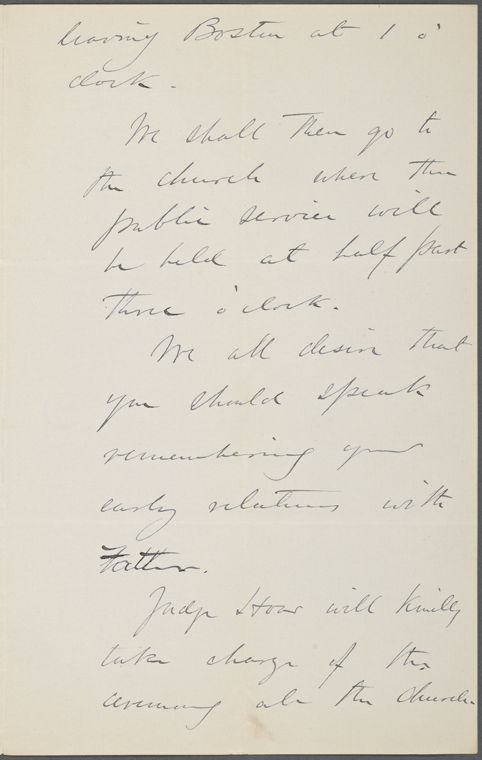 leaving Boston at 1 o'
clock.
We shall then go to
the church where the
public service will
be held at half past
three o'clock.
We all desire that
you should speak
remembering your
early relations with
Father.
Judge Hoar will kindly
take charge of the
ceremony at the church.